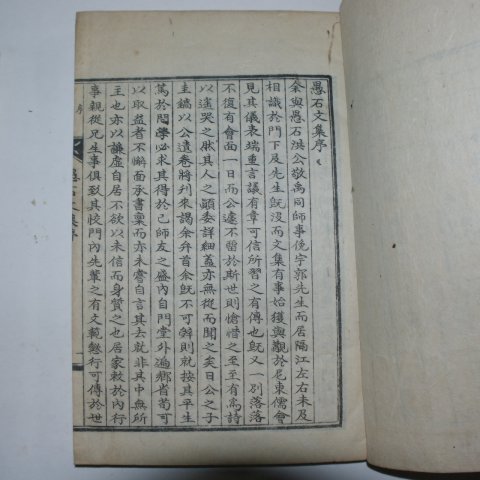 愚石文集序
余與愚石洪公敬禹同師事俛宇郭先生而居隔江左右未及
相識於門下及先生旣沒而文集有事始獲與觀於尼東儒會
見其儀表端重言議有章可信所習之有傳也旣又一別落落
不復有會面一日而公遽不留於斯世則愴惜之至至有爲詩
以遙哭之然其人之顚委詳細蓋亦無從而聞之矣日公之子
圭鎬以公遺卷將刋來謁余弁首余旣不可辭則就按其平生
篤於問學必求其得於己師友之盛內自門堂外遍鄉省苟可
以取益者不懈面承書稟而亦未嘗自言其去就非其中無所
主也亦以謙虛自居不欲以未信而身質之也居家敕於內行
事親從兄生事俱致其祫門內先輩之有文範懿行可傳於世
序
愚石文集序
一